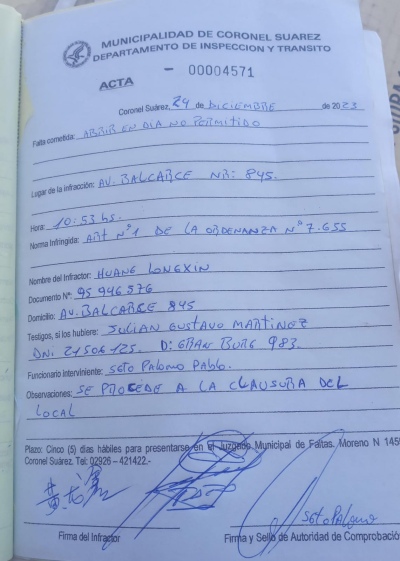 MUNICIPALIDAD DE CORONEL SUAREZ
DEPARTAMENTO DE INSPECCION Y TRANSITO
ACTA
- 00004571
Coronel Suárez, 24 de DICIEMBRE de 2023
Falta cometida: ABRIR EN DIA NO PERMITIDO
Lugar de la infracción: AV. BALCARCE NR: 845.
Hora: 10:53 hs.
Norma Infringida: ART Nº1 DE LA ORDENANZA Nº 7.655
Nombre del Infractor: HUANG LONGXIN
Documento Nº: 95 946 576
Domicilio: AV. BALCARCE 845
Testigos, si los hubiere: JULIAN GUSTAVO MARTINEZ
DNI: 21506125. D: GRAN BURG 983.
Funcionario Interviniente: Soto Palomo Pablo.
Observaciones: SE PROCEDE A LA CLAUSURA DEL
LOCAL
Plazo: Cinco (5) días hábiles para presentarse en el Juzgado Municipal de Faltas. Moreno N 145
Coronel Suárez. Tel: 02926 - 421422.-
黄龙
Soto Palomo
Firma del Infractor
Firma y Sello de Autoridad de Comprobación